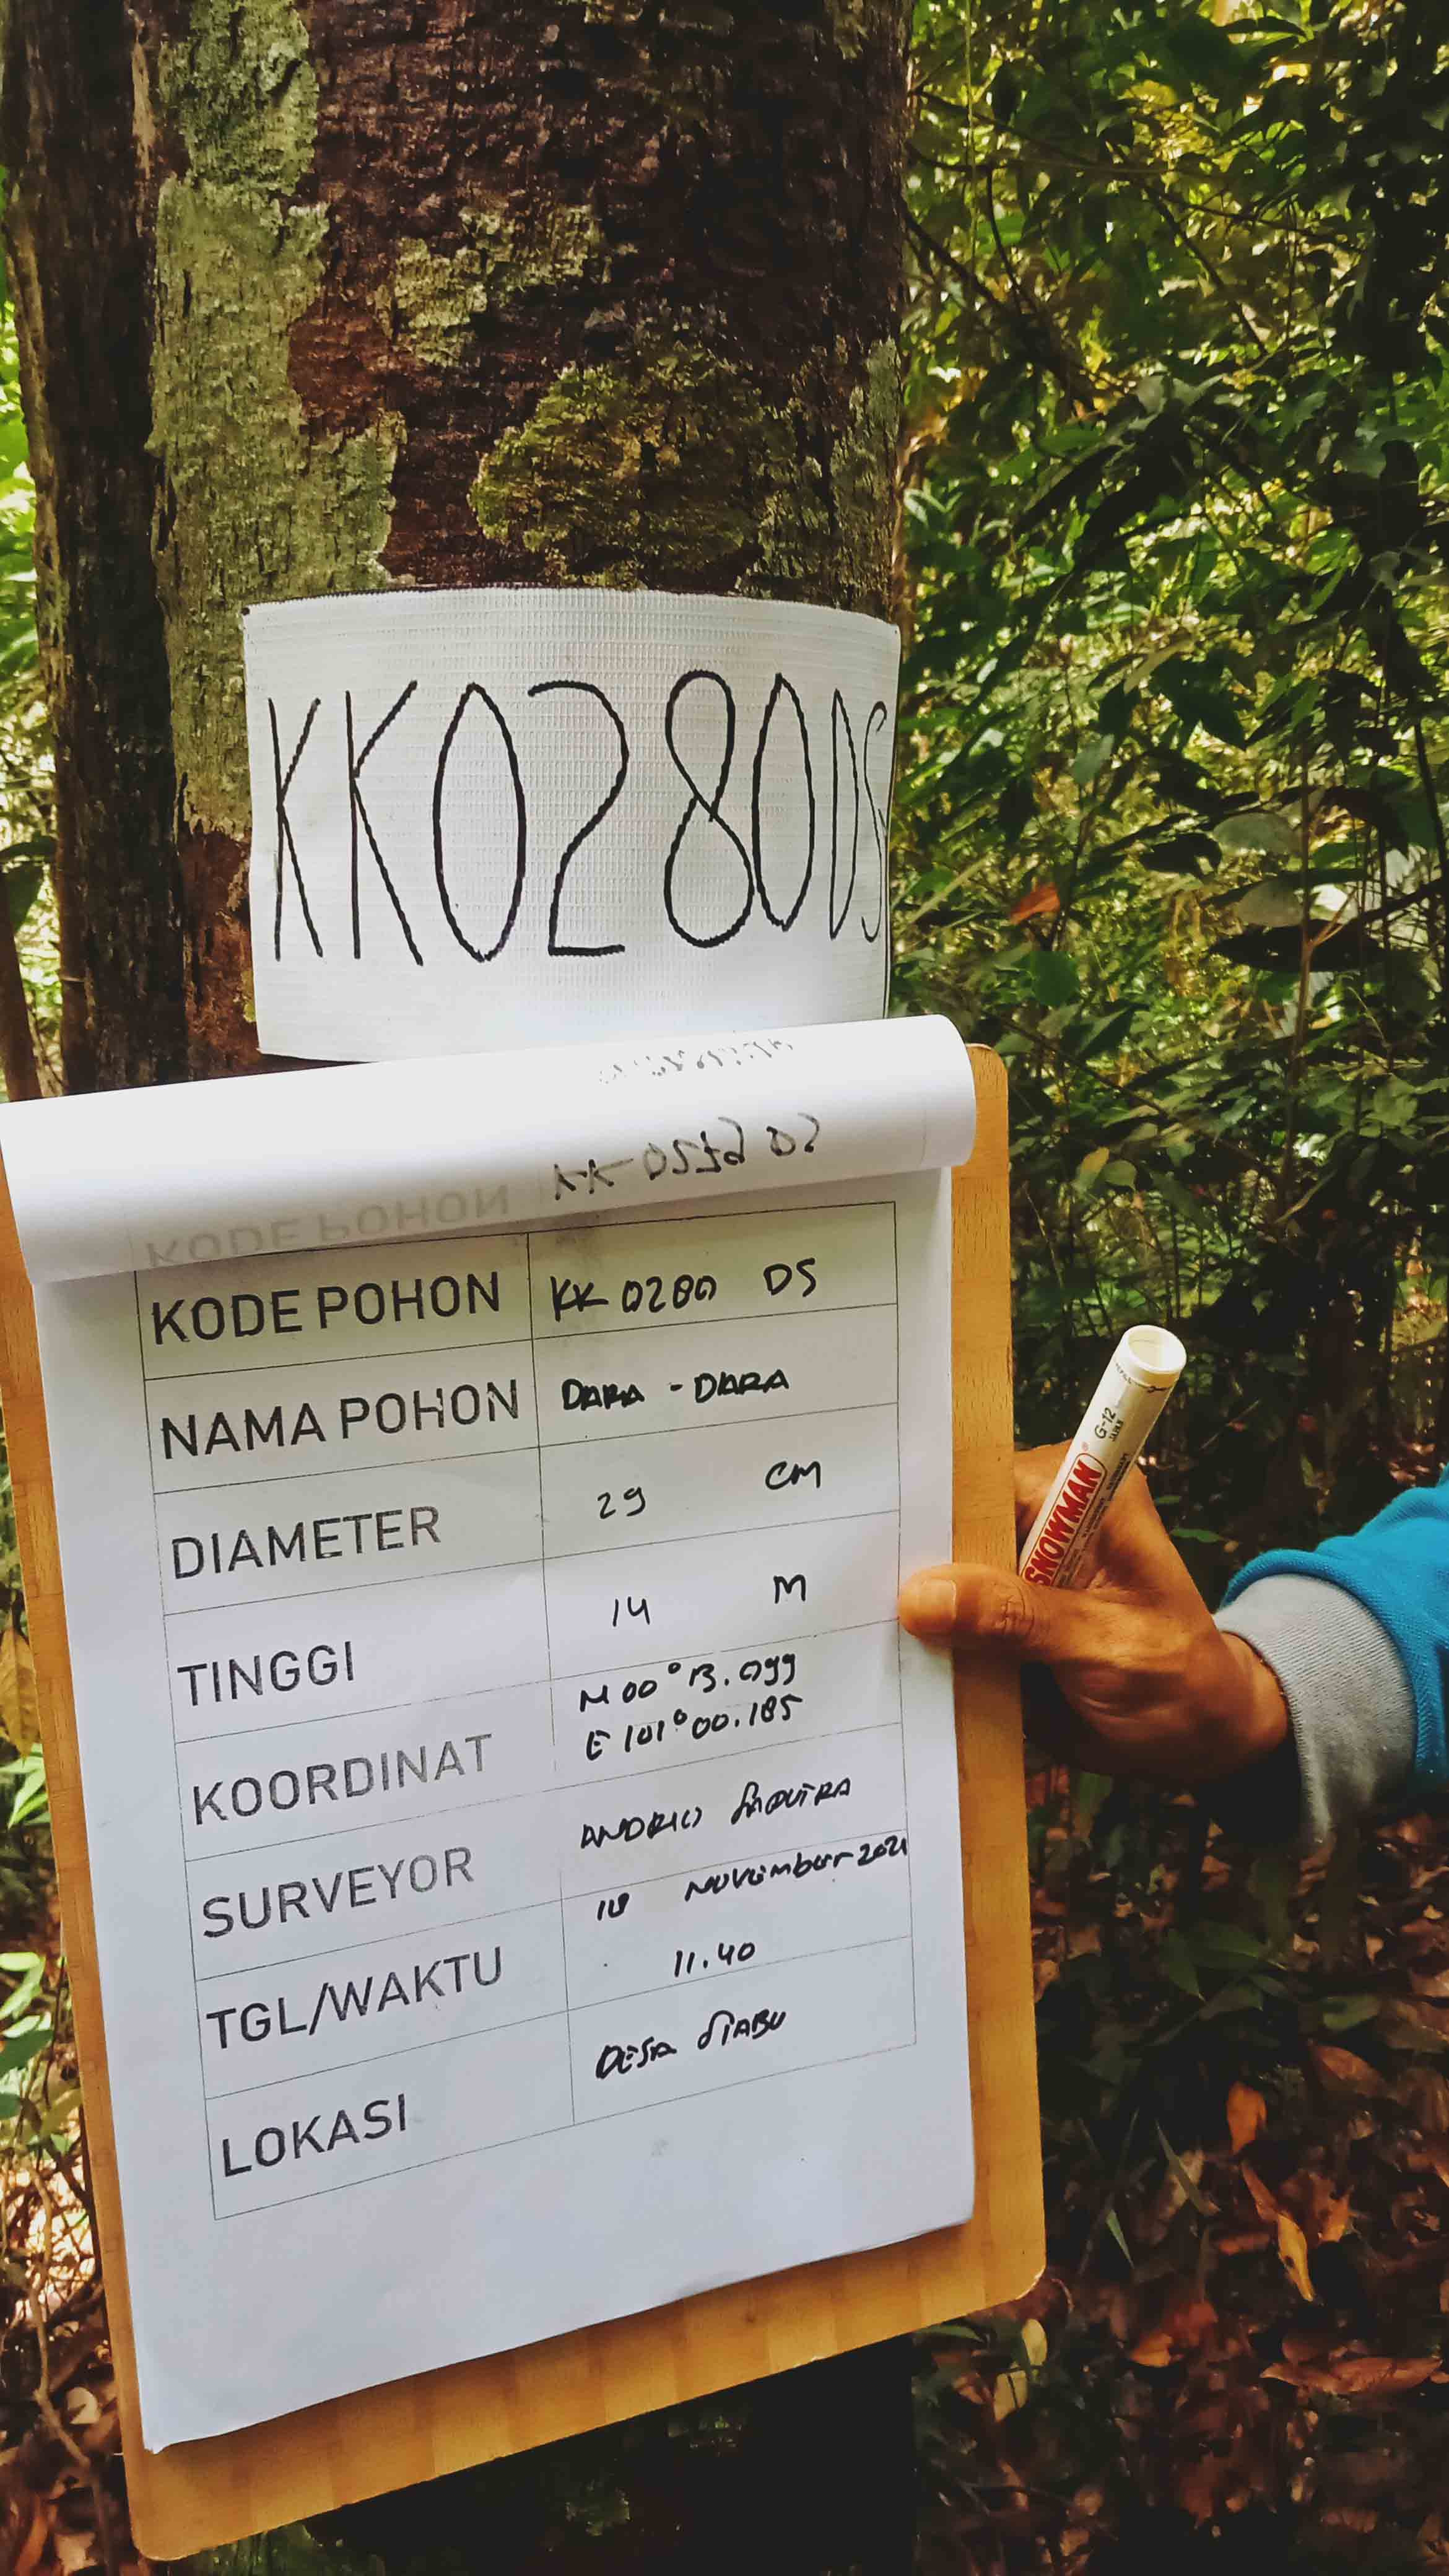 KK0280DS
KODE POHON KK 0280 DS
NAMA POHON DARA - DARA
DIAMETER 29 CM
TINGGI 14 M
KOORDINAT N 00° 13.099
E 101° 00.185
SURVEYOR
TGL/WAKTU 18 November 2021
11.40
LOKASI DESA SIABU
SNOWMAN
G-12